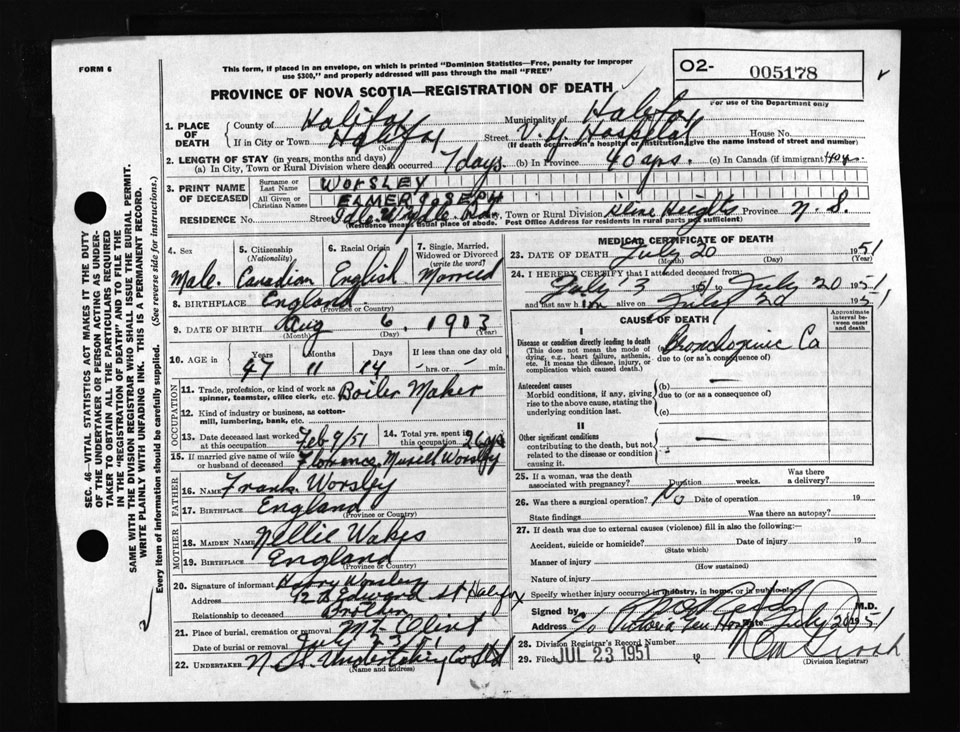 FORM 6
This form, if placed in an envelope, on which is printed "Dominion Statistics—Free, penalty for improper
use $300," and properly addressed will pass through the mail "FREE"
O2- 005178
For use of the Department only
PROVINCE OF NOVA SCOTIA—REGISTRATION OF DEATH
1. PLACE OF DEATH
County of Halifax Municipality of Halifax
If in City or Town Halifax Street V. G. Hospital House No.
(Name) (If death occurred in a hospital or institution, give the name instead of street and number)
2. LENGTH OF STAY (in years, months and days)
(a) In City, Town or Rural Division where death occurred 7 days. (b) In Province 40 yrs. (c) In Canada (if immigrant) 40 yrs.
3. PRINT NAME OF DECEASED
Surname or Last Name WORSLEY
All Given or Christian Names ELMER JOSEPH
RESIDENCE No. Street Idle Wylde Town or Rural Division Heights Province N. S.
(Residence means usual place of abode. Post Office Address for residents in rural parts not sufficient)
4. Sex Male
5. Citizenship (Nationality) Canadian
6. Racial Origin English
7. Single, Married, Widowed or Divorced (write the word) Married
8. BIRTHPLACE England
(Province or Country)
9. DATE OF BIRTH Aug 6, 1903
(Month) (Day) (Year)
10. AGE in Years 47 Months 11 Days 14 If less than one day old hrs. or min.
OCCUPATION
11. Trade, profession, or kind of work as spinner, teamster, office clerk, etc. Boiler Maker
12. Kind of industry or business, as cotton-mill, lumbering, bank, etc.
13. Date deceased last worked at this occupation Feb 9/51
14. Total yrs. spent in this occupation 26 yrs
15. If married give name of wife or husband of deceased Florence Worsley
FATHER
16. NAME Frank Worsley
17. BIRTHPLACE England
(Province or Country)
MOTHER
18. MAIDEN NAME Nellie
19. BIRTHPLACE England
(Province or Country)
20. Signature of informant Harry Worsley
Address Edward St Halifax
Relationship to deceased Brother
21. Place of burial, cremation or removal Mt. Olivet
Date of burial or removal
22. UNDERTAKER N. S. Undertaking Co Ltd
(Name and address)
MEDICAL CERTIFICATE OF DEATH
23. DATE OF DEATH July 20 1951
(Month) (Day) (Year)
24. I HEREBY CERTIFY that I attended deceased from
July 3 1951 to July 20 1951
and last saw him alive on July 20 1951
CAUSE OF DEATH
Approximate interval between onset and death
I
Disease or condition directly leading to death
(This does not mean the mode of dying, e.g., heart failure, asthenia, etc. It means the disease, injury, or complication which caused death.)
Bronchogenic Ca
due to (or as a consequence of)
Antecedent causes
Morbid conditions, if any, giving rise to the above cause, stating the underlying condition last.
(b) —
due to (or as a consequence of)
(c)
II
Other significant conditions
contributing to the death, but not related to the disease or condition causing it.
—
25. If a woman, was the death associated with pregnancy? Duration weeks. Was there a delivery?
26. Was there a surgical operation? No Date of operation 19
State findings Was there an autopsy?
27. If death was due to external causes (violence) fill in also the following:—
Accident, suicide or homicide? Date of injury 19
(State which)
Manner of injury
(How sustained)
Nature of injury
Specify whether injury occurred in industry, in home, or in public place
Signed by M.D.
Address c/o Victoria Gen Hosp Date July 20 1951
28. Division Registrar's Record Number
29. Filed JUL 23 1951 19
(Division Registrar)
SEC. 46—VITAL STATISTICS ACT MAKES IT THE DUTY
OF THE UNDERTAKER OR PERSON ACTING AS UNDER-
TAKER TO OBTAIN ALL THE PARTICULARS REQUIRED
IN THE "REGISTRATION OF DEATH" AND TO FILE THE
SAME WITH THE DIVISION REGISTRAR WHO SHALL ISSUE THE BURIAL PERMIT.
WRITE PLAINLY WITH UNFADING INK. THIS IS A PERMANENT RECORD.
Every item of information should be carefully supplied. (See reverse side for instructions.)